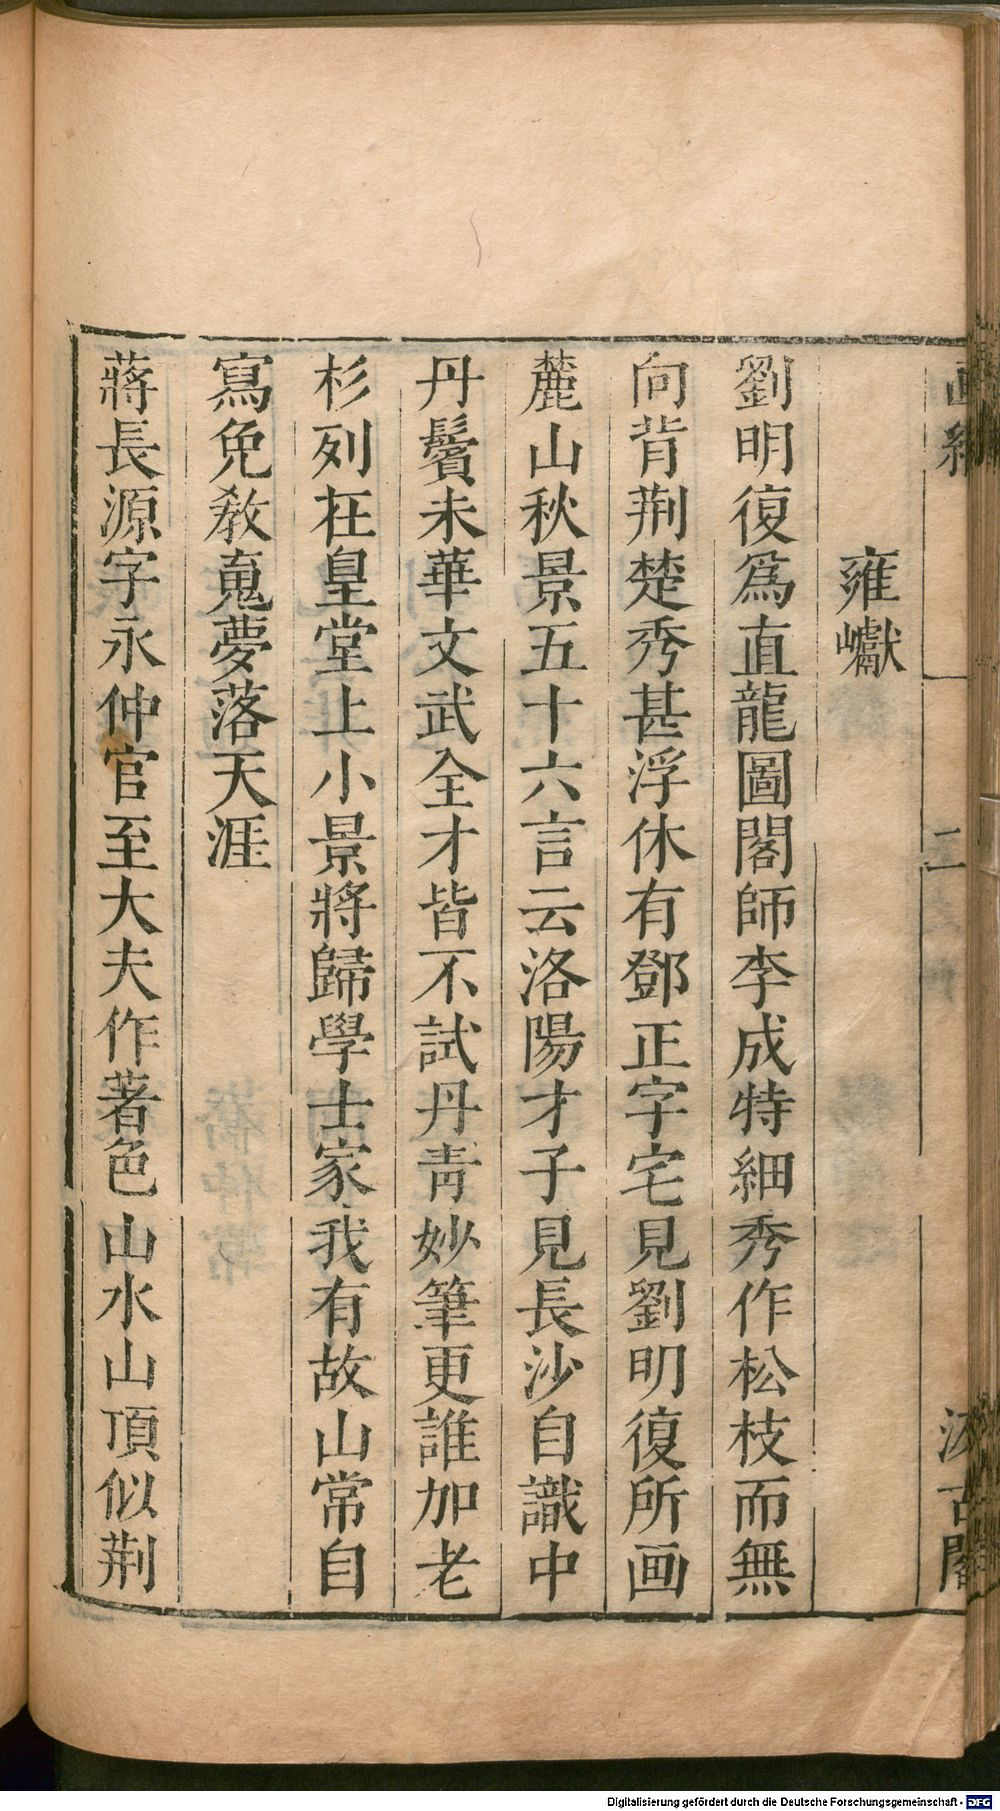 雍巘
劉明復爲直龍圖閣師李成特細秀作松枝而無
向背荆楚秀甚浮休有鄧正字宅見劉明復所画
麓山秋景五十六言云洛陽才子見長沙自識中
丹鬢未華文武全才皆不試丹靑妙筆更誰加老
杉列在皇堂上小景將歸學士家我有故山常自
寫免敎䰟夢落天涯
蔣長源字永仲官至大夫作著色山水山頂似荆
二
古閣
Digitalisierung gefördert durch die Deutsche Forschungsgemeinschaft - DFG